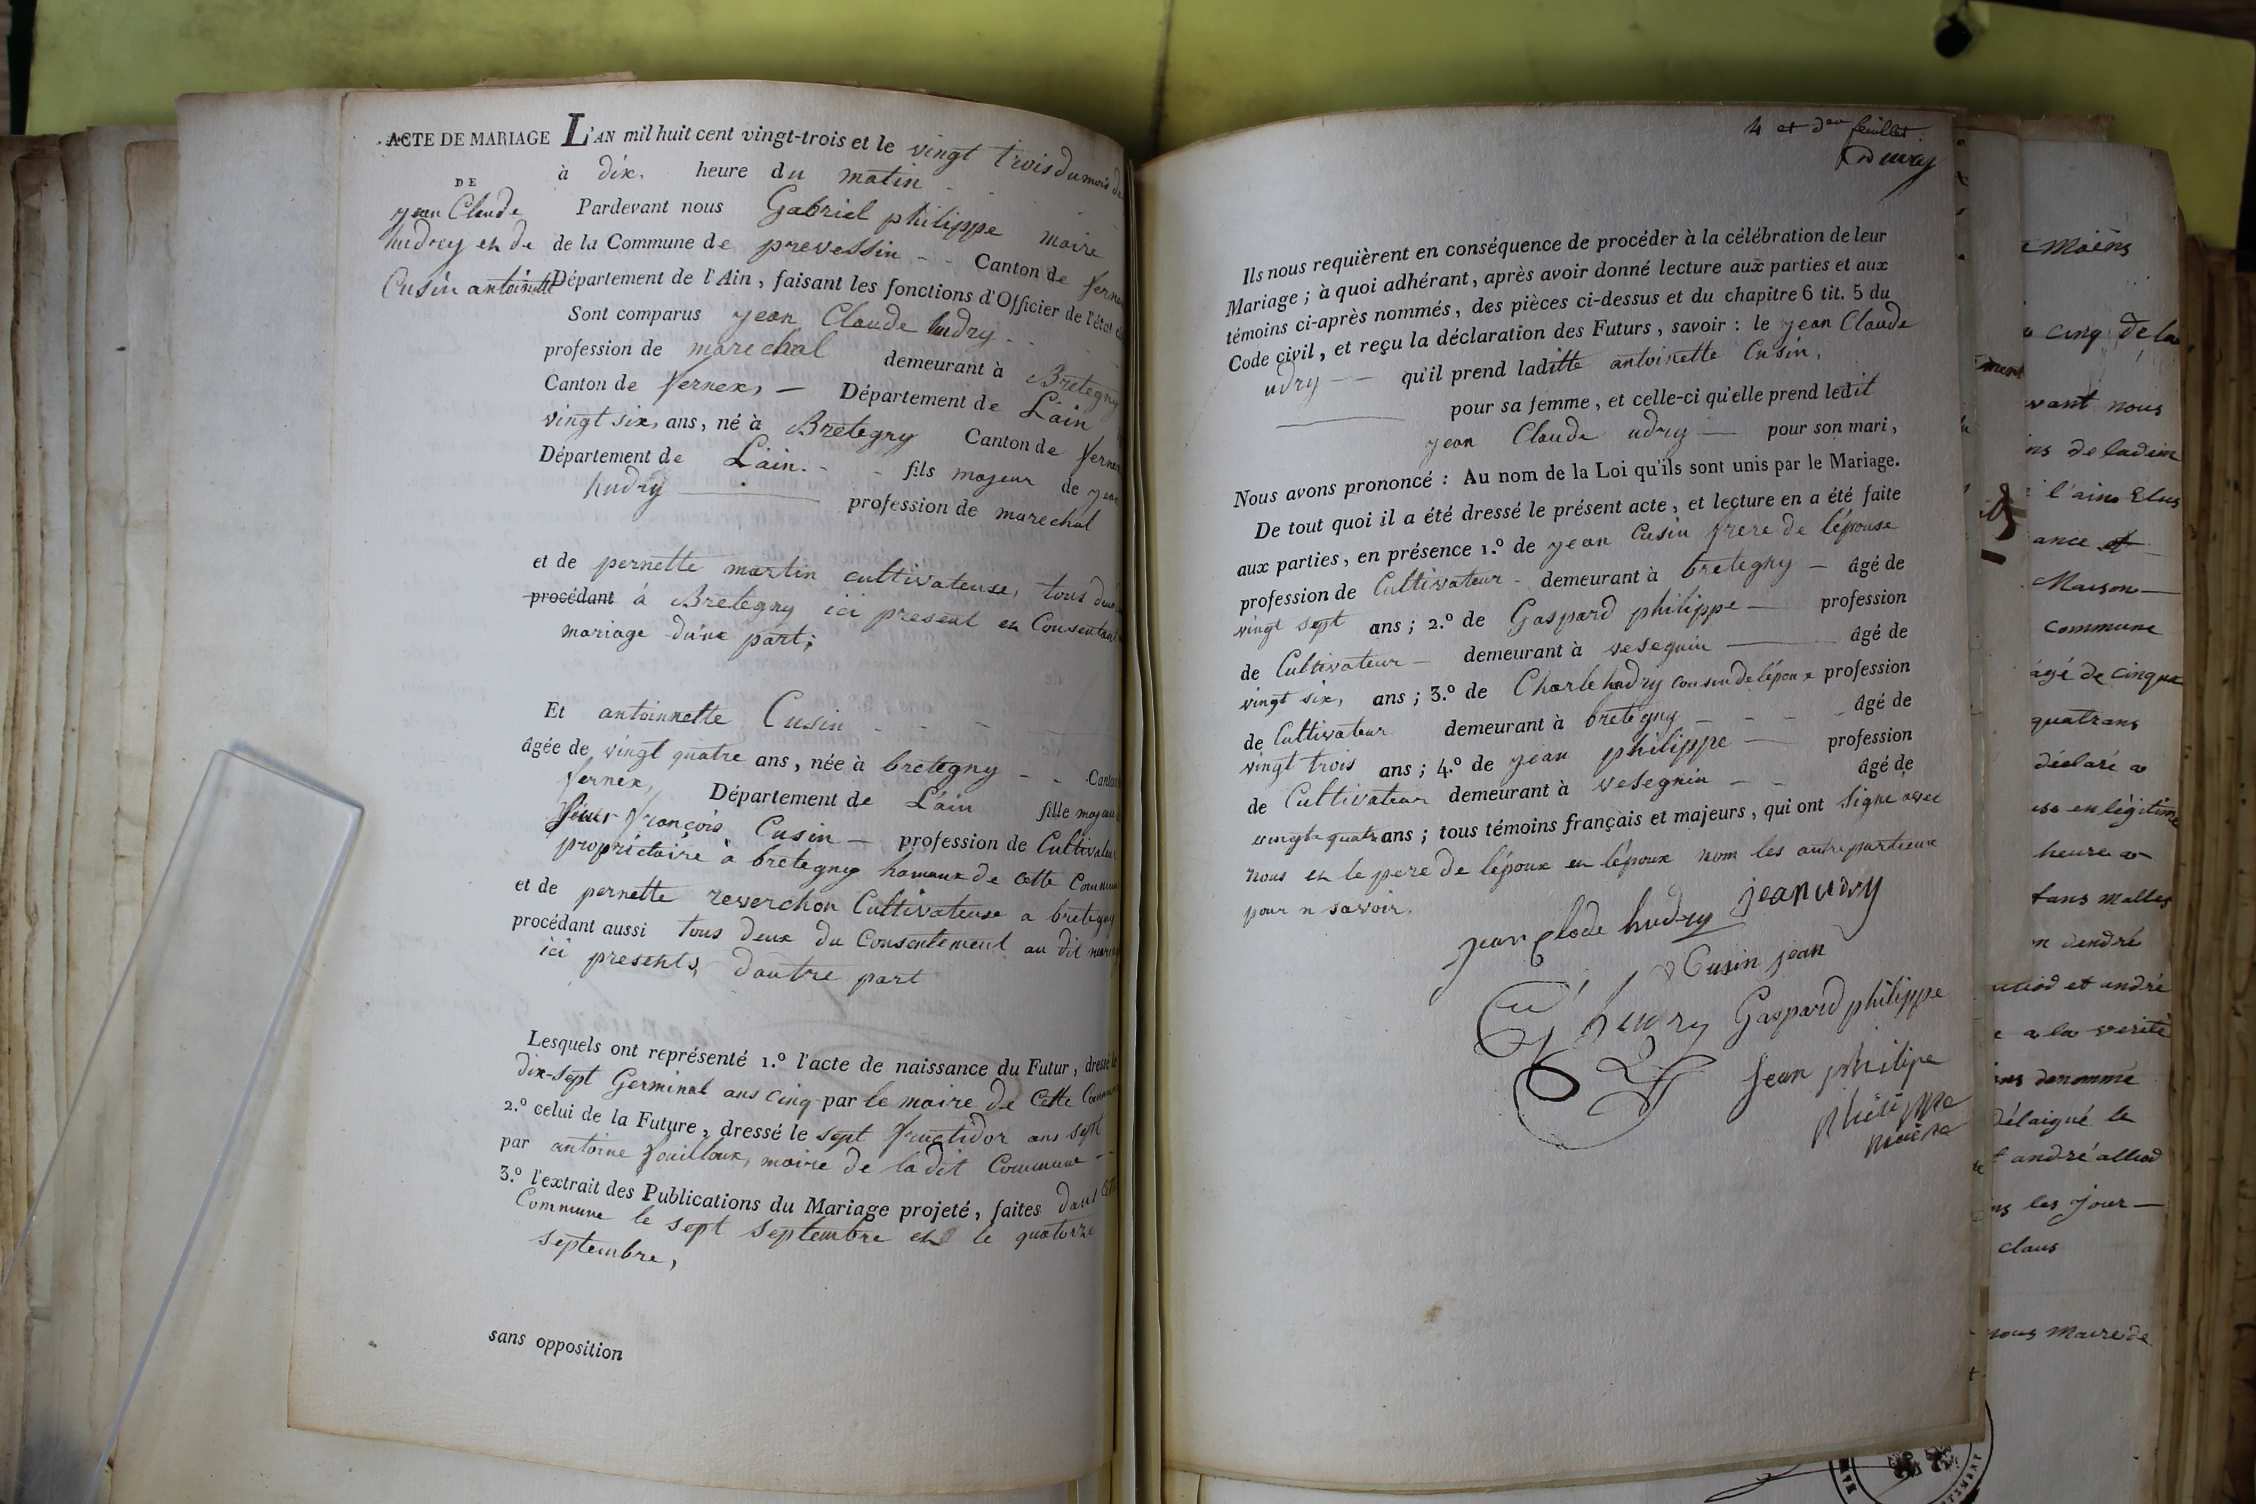 ACTE DE MARIAGE
DE
jean Claude
hudry et de
Cusin antoinette
L'AN mil huit cent vingt-trois et le vingt trois du mois de
à dix heure du matin
Pardevant nous Gabriel philippe maire
de la Commune de prevessin Canton de fernex
Département de l'Ain, faisant les fonctions d'Officier de l'état
Sont comparus jean Claude hudry
profession de marechal demeurant à Bretegny
Canton de fernex, Département de L'ain
vingt six, ans, né à Bretegny Canton de fernex
Département de L'ain. fils majeur de jean
hudry profession de marechal
et de pernette martin cultivateuse, tous deux
procédant à Bretegny ici present en Consentant
mariage d'une part;
Et antoinnette Cusin
âgée de vingt quatre ans, née à bretegny Canton
fernex, Département de L'ain fille majeur
françois Cusin profession de Cultivateur
proprietaire à bretegny hameaux de Cette Commune
et de pernette reverchon Cultivateuse a bretegny
procédant aussi tous deux du Consentement au dit mariage
ici presents, d'autre part
Lesquels ont représenté 1.º l'acte de naissance du Futur, dressé le
dix-sept Germinal ans cinq par le maire de Cette Commune
2.º celui de la Future, dressé le sept fructidor ans sept
par antoine fouilloux, maire de la dit Commune
3.º l'extrait des Publications du Mariage projeté, faites dans
Commune le sept septembre et le quatorze
septembre,
sans opposition
4 et der feuillet
Ils nous requièrent en conséquence de procéder à la célébration de leur
Mariage; à quoi adhérant, après avoir donné lecture aux parties et aux
témoins ci-après nommés, des pièces ci-dessus et du chapitre 6 tit. 5 du
Code civil, et reçu la déclaration des Futurs, savoir: le jean Claude
udry qu'il prend laditte antoinette Cusin,
pour sa femme, et celle-ci qu'elle prend ledit
jean Claude udry pour son mari,
Nous avons prononcé: Au nom de la Loi qu'ils sont unis par le Mariage.
De tout quoi il a été dressé le présent acte, et lecture en a été faite
aux parties, en présence 1.º de jean Cusin frere de l'épouse
profession de Cultivateur demeurant à bretegny âgé de
vingt sept ans; 2.º de Gaspard philippe profession
de Cultivateur demeurant à vesegnin âgé de
vingt six, ans; 3.º de Charle hudry cousin de l'époux profession
de Cultivateur demeurant à bretegny âgé de
vingt trois ans; 4.º de jean philippe profession
de Cultivateur demeurant à vesegnin âgé de
vingte quatr ans; tous témoins français et majeurs, qui ont signe avec
nous et le pere de l'époux et l'époux nom les autre
pour n savoir.
jean Clode hudry jean udry
Cusin jean
hudry Gaspard philippe
jean philipe
philippe
maire
moins
cinq de la
vant nous
l'ain Elus
ance
Maison
commune
âgé de cinqua
quatrans
déclaré
en légitime
heure
et andré
a la verité
denommé
les jour
clans
nous Maire de